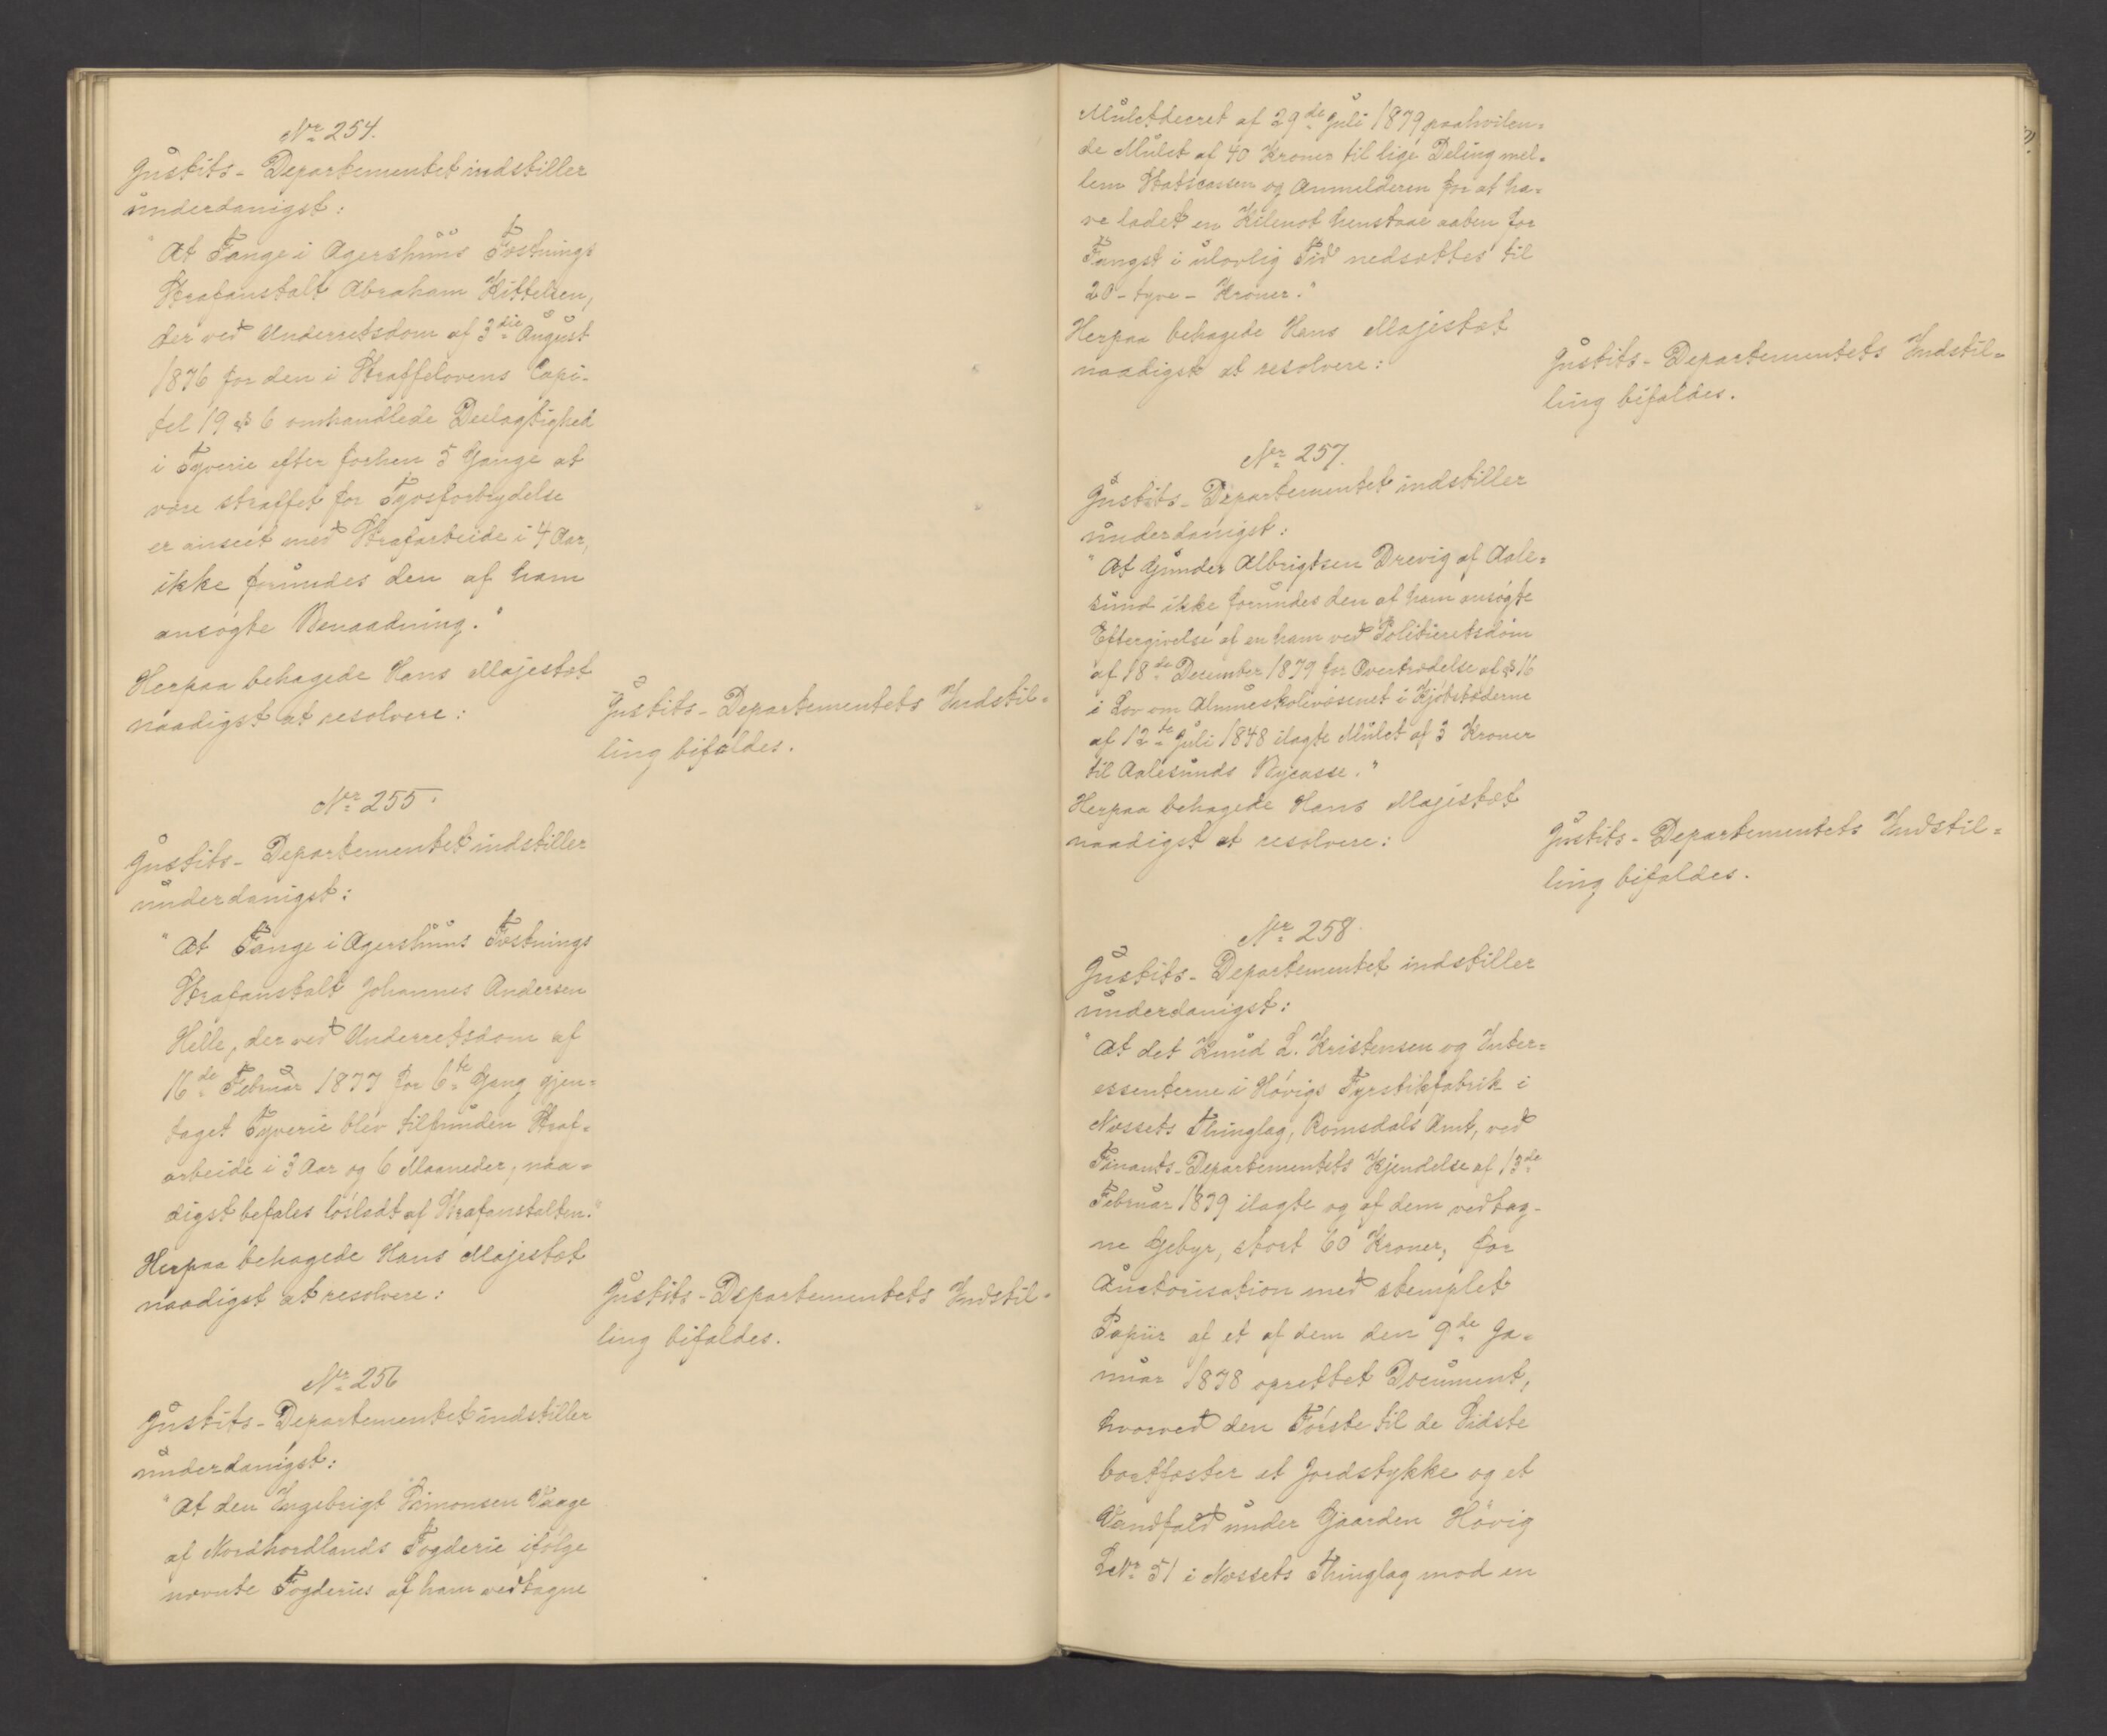 Nr 254.
Justits-Departementet indstiller
underdanigst:
"At Fange i Agershuus Fæstnings
Strafanstalt Abraham Kittelsen,
der ved Underretsdom af 3die August
1876 for den i Straffelovens Capi-
tel 19 § 6 omhandlede Deelagtighed
i Tyverie efter forhen 5 Gange at
være straffet for Tyvsforbrydelse
er anseet med Strafarbeide i 4 Aar,
ikke forundes den af ham
ansøgte Benaadning."
Herpaa behagede Hans Majestæt
naadigst at resolvere:
Justits-Departementets Indstil-
ling bifaldes.
Nr 255.
Justits-Departementet indstiller
underdanigst:
"At Fange i Agershuus Fæstnings
Strafanstalt Johannes Andersen
Helle, der ved Underretsdom af
16de Februar 1877 for 6te Gang gjen-
taget Tyverie blev tilfunden Straf-
arbeide i 3 Aar og 6 Maaneder, naa-
digst befales løsladt af Strafanstalten."
Herpaa behagede Hans Majestæt
naadigst at resolvere:
Justits-Departementets Indstil-
ling bifaldes.
Nr 256
Justits-Departementet indstiller
underdanigst:
"At den Engebrigt Simonsen Vaage
af Nordhordlands Fogderie ifølge
nævnte Fogderies af ham vedtagne
Mulctdecret af 29de Juli 1879 paahvilen-
de Mulct af 40 Kroner til lige Deling mel-
lem Statscassen og Anmelderen for at ha-
ve ladet en Kilenot henstaae aaben for
Fangst i ulovlig Tid nedsættes til
20 - tyve - Kroner."
Herpaa behagede Hans Majestæt
naadigst at resolvere:
Justits-Departementets Indstil-
ling bifaldes.
Nr 257.
Justits-Departementet indstiller
underdanigst:
"At Gunder Albrigtsen Drevig af Aale-
sund ikke forundes den af ham ansøgte
Eftergivelse af en ham ved Politieretsdom
af 18de December 1879 for Overtrædelse af § 16
i Lov om Almueskolevæsenet i Kjøbstæderne
af 12te Juli 1848 ilagte Mulct af 3 Kroner
til Aalesunds Bycasse."
Herpaa behagede Hans Majestæt
naadigst at resolvere:
Justits-Departementets Indstil-
ling bifaldes.
Nr 258.
Justits-Departementet indstiller
underdanigst:
"At det Knud L. Kristensen og Inter-
essenterne i Høvigs Fyrstikfabrik i
Næssets Thinglag, Romsdals Amt, ved
Finants-Departementets Kjendelse af 13de
Februar 1879 ilagte og af dem vedtag-
ne Gebyr, stort 60 Kroner, for
Auctorisation med stemplet
Papiir af et af dem den 9de Ja-
nuar 1878 oprettet Document,
hvorved den Første til de Sidste
bortfæster et Jordstykke og et
Vandfald under Gaarden Høvig
LNr 51 i Næssets Thinglag mod en